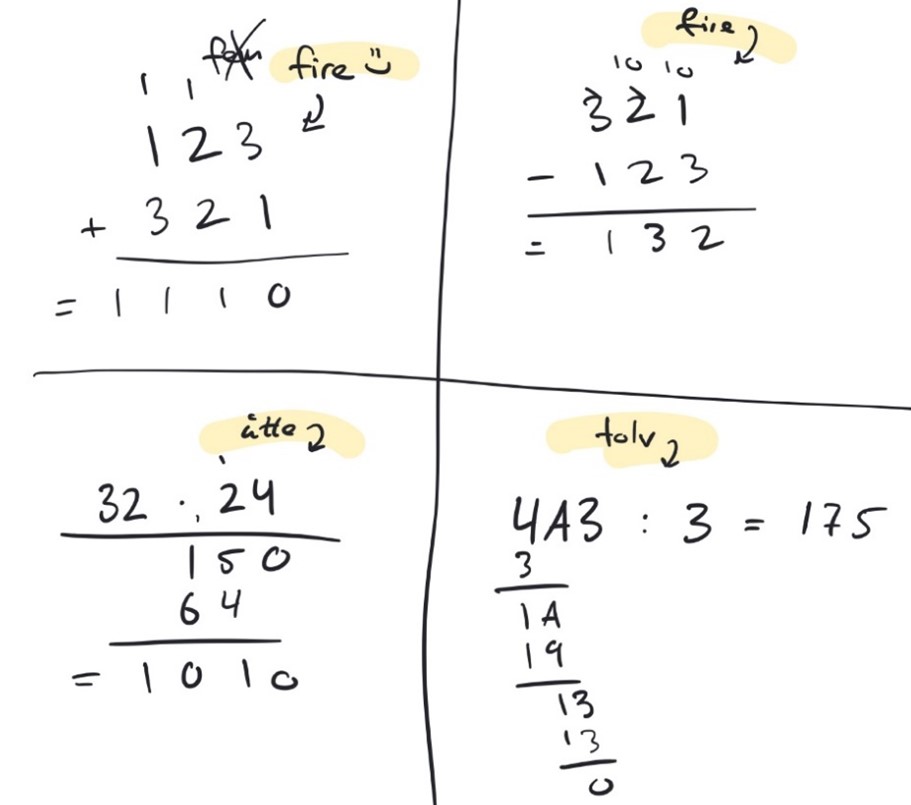 fem fire ü
1 1
123
+ 321
= 1110
fire
10 10
321
- 123
= 132
åtte
1
32 · 24
150
64
= 1010
tolv
4A3 : 3 = 175
3
1A
19
13
13
0